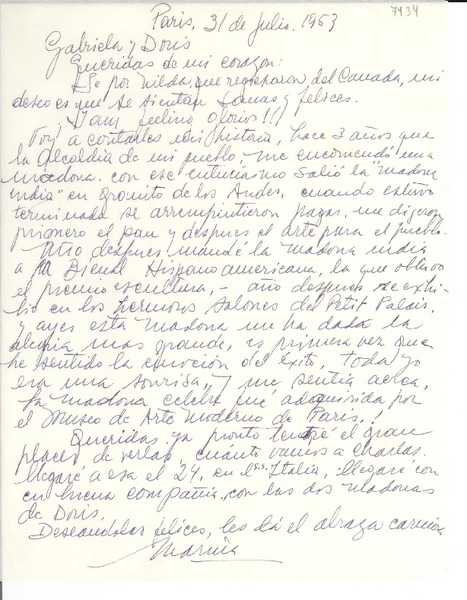 7434
Paris, 31 de Julio. 1953
Gabriela y Doris
Queridas de mi corazon:
Se por Nilda, que regresaron del Canada, mi
deseo es que se sientan sanas y felices.
I am feeling glorios!!!
Voy a contarles mi historia, hace 3 años que
la Alcaldia de mi pueblo, me encomendó una
madona, con ese entuciasmo salió la "madona
india" en granito de los Andes, cuando estuvo
terminada se arrempintieron pagar, me digeron
primero el pan y despues el arte para el pueblo.
Año despues mandé la madona india
a la Bienal Hispanoamericana, la que obtuvo
el premio escultura, - año despues se exhi-
bió en los hermosos salones del Petit Palais,
y ayer esta madona me ha dado la
alegria mas grande, es primera vez que
he sentido la emoción del éxito, toda yo
era una sonrisa, y me sentía aerea,
la madona celebre fué adquirida por
el Museo de Arte Moderno de Paris,.
Queridas ya pronto tendré el gran
placer de verlas, cuánto vamos a charlar.
llegaré a esa el 24, en el s.s. Italia, llegaré con
en buena compañia, con las dos madonas
de Doris.
Deseandolas felices, les dá el abrazo
Marina